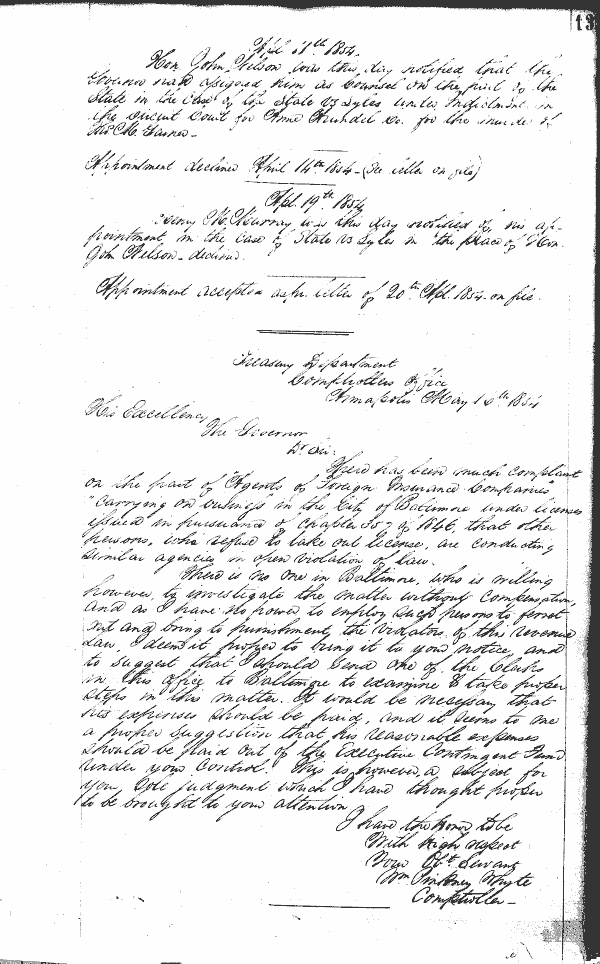 13
Apl. 11th 1854.
Hon. John Nelson was this day notified that the
Governor had assigned him as Counsel on the part of the
State in the Case of the State vs Lyles, under Indictment in
the Circuit Court for Anne Arundel Co. for the murder of
M. Garner—
Appointment declined April 14th 1854—(See letter on file)
Apl. 19th 1854
Henry M. Murray was this day notified of his ap-
pointment, in the case of State vs Lyles in the place of Hon.
John Nelson—declined.
Appointment accepted as pr. letter of 20th Apl. 1854 on file.
Treasury Department
Comptrollers Office
Annapolis May 16th 1854
His Excellency
The Governor
Dr Sir.
There has been much complaint
on the part of "Agents of Foreign Insurance Companies"
"Carrying on business in the City of Baltimore under licenses
issued in pursuance of chapter 357 of 1846, that other
persons, who refuse to take out license, are conducting
similar agencies in open violation of law.
There is no one in Baltimore, who is willing
however, to investigate the matter without compensation,
and as I have no power to employ such persons to ferret
out and bring to punishment, the violators of this revenue
Law, I deem it proper to bring it to your notice, and
to suggest that I should send one of the Clerks
in this office to Baltimore to examine & take proper
steps in this matter. It would be necessary that
his expenses should be paid, and it seems to me
a proper suggestion that his reasonable expenses
should be paid out of the Executive Contingent Fund
under your Control. This is, however, a subject for
your sole judgment which I have thought proper
to be brought to your attention
I have the honor to be
With high respect
Your Obt. Servant
Wm Pinkney Whyte
Comptroller—